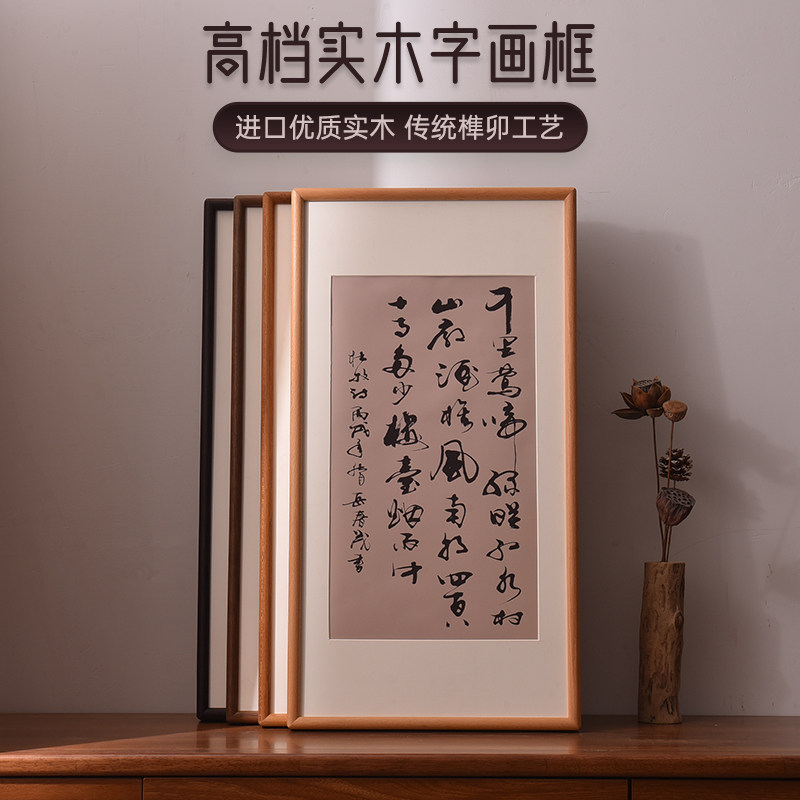 高档实木字画框
进口优质实木 传统榫卯工艺
千里鶯啼緑映红水村
山郭酒旗風南朝四百八
十寺多少樓臺烟雨中
杜牧诗丙戌年
書